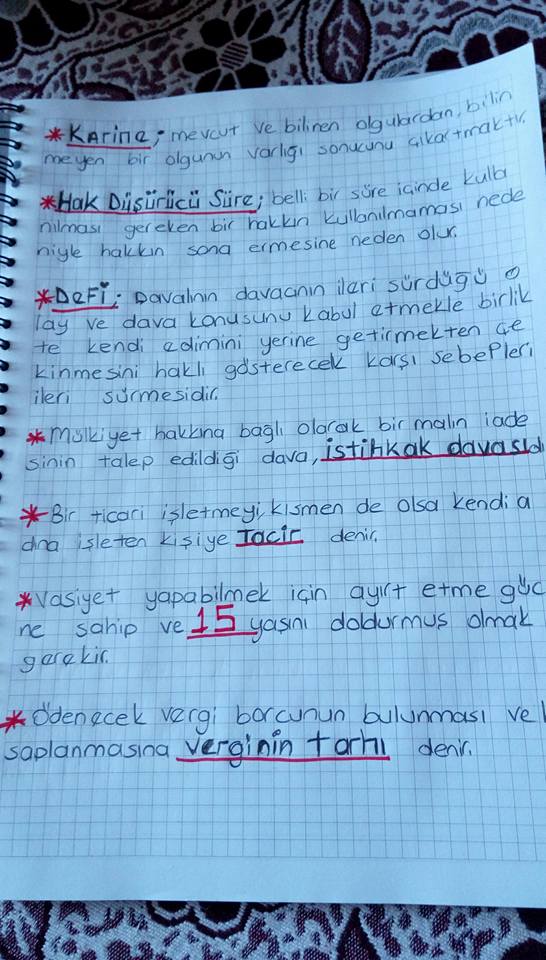 *Karine; mevcut ve bilinen olgulardan, bilin
meyen bir olgunun varlığı sonucunu çıkartmaktır.
*Hak Düşürücü Süre; belli bir süre içinde kulla
nılması gereken bir hakkın kullanılmaması nede
niyle hakkın sona ermesine neden olur.
*Defi; Davalının davacının ileri sürdüğü o
lay ve dava konusunu kabul etmekle birlik
te kendi edimini yerine getirmekten çe
kinmesini haklı gösterecek karşı sebepleri
ileri sürmesidir.
*Mülkiyet hakkına bağlı olarak bir malın iade
sinin talep edildiği dava, istihkak davasıdı
*Bir ticari işletmeyi, kısmen de olsa kendi a
dına işleten kişiye Tacir denir.
*Vasiyet yapabilmek için ayırt etme güc
ne sahip ve 15 yaşını doldurmuş olmak
gerekir.
*Ödenecek vergi borcunun bulunması ve h
saplanmasına verginin tarhı denir.